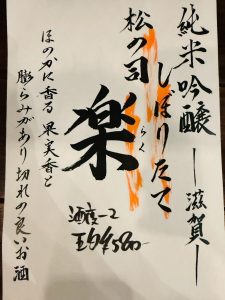 純米吟醸ー滋賀ー
しぼりたて
松の司
楽
らく
ほのかに香る果実香と
膨らみがあり切れの良いお酒
酒度ー2